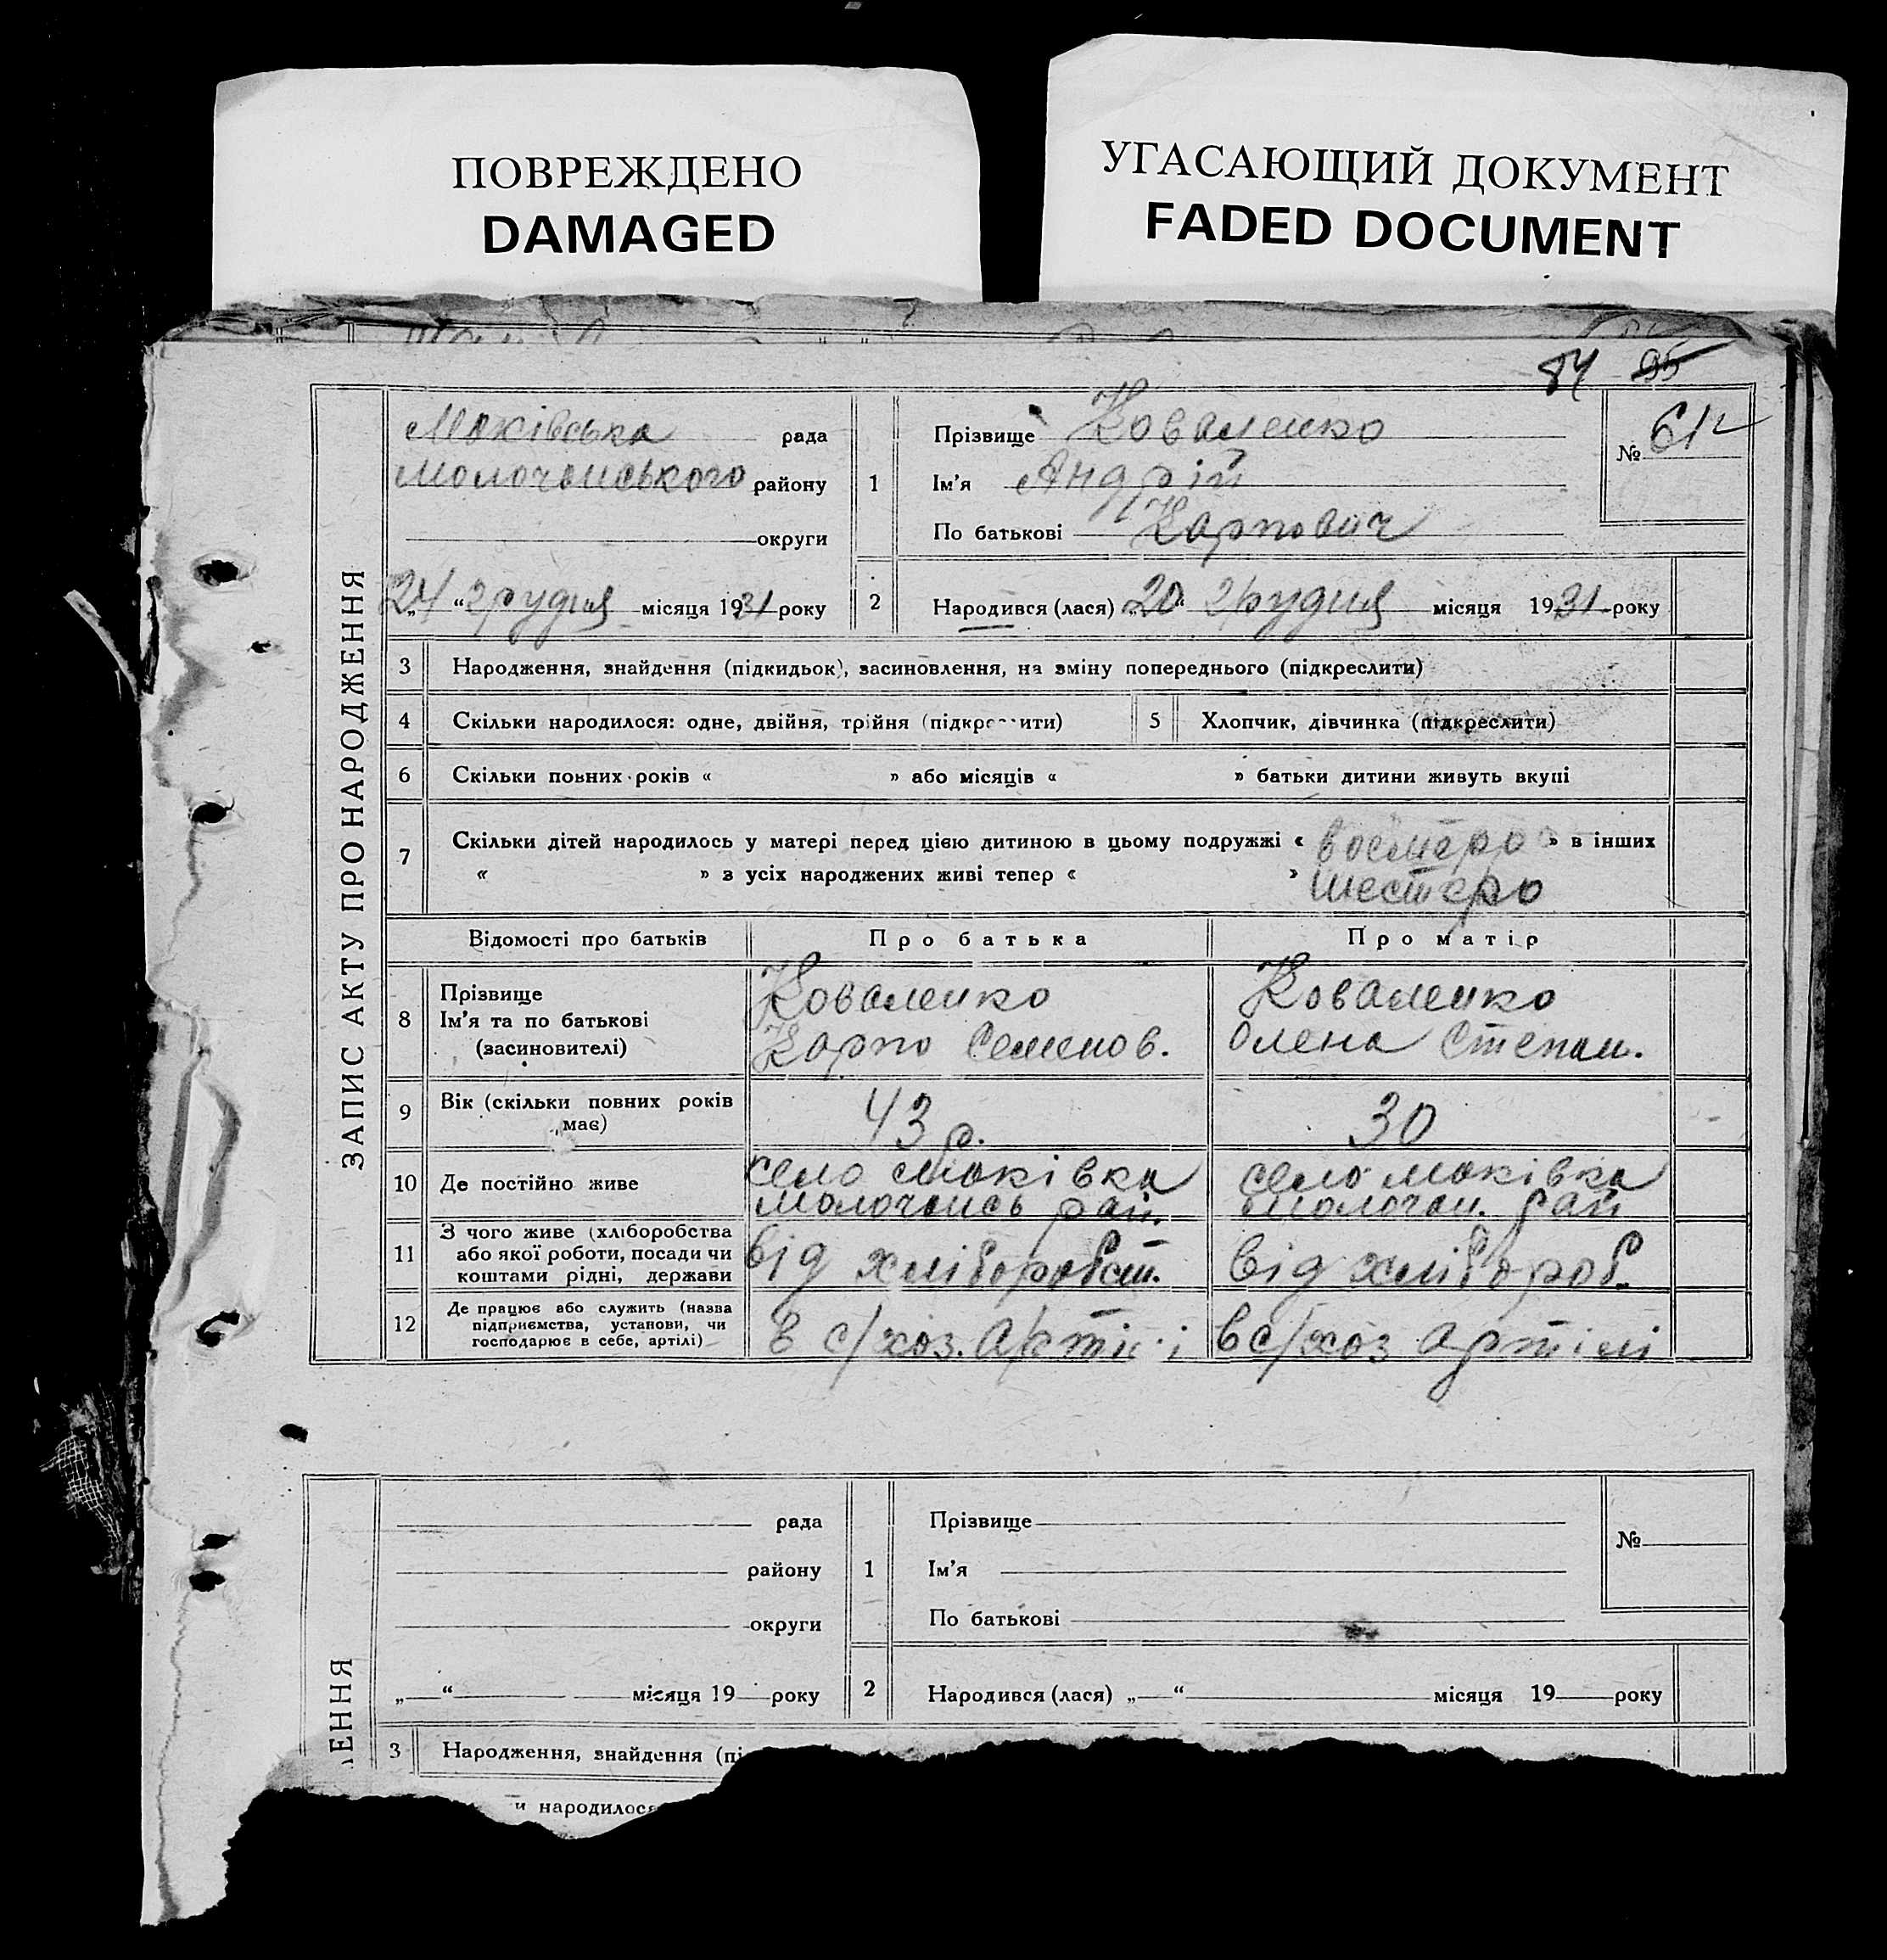 ПОВРЕЖДЕНО
DAMAGED
УГАСАЮЩИЙ ДОКУМЕНТ
FADED DOCUMENT
84 95
ЗАПИС АКТУ ПРО НАРОДЖЕННЯ
Моківська рада
Молочанського району
округи
„24“ грудня місяця 1931 року
1
Прізвище Коваленко
Ім'я Андрій
По батькові Карпович
№ 61
2 Народився (лася) „20“ грудня місяця 1931 року
3 Народження, знайдення (підкидьок), засиновлення, на зміну попереднього (підкреслити)
4 Скільки народилося: одне, двійня, трійня (підкре ити) 5 Хлопчик, дівчинка (підкреслити)
6 Скільки повних років « » або місяців « » батьки дитини живуть вкупі
7 Скільки дітей народилось у матері перед цією дитиною в цьому подружжі « восмеро » в інших
« » з усіх народжених живі тепер « » шестеро
Відомості про батьків Про батька Про матір
8 Прізвище Коваленко Коваленко
Ім'я та по батькові Карпо Семенов. Олена Степан.
(засиновителі)
9 Вік (скільки повних років має) 43 р. 30
10 Де постійно живе село Моківка село Моківка
Молочансь рай. Молочан. рай
11 З чого живе (хліборобства
або якої роботи, посади чи від хліборобст. від хлібороб.
коштами рідні, держави
12 Де працює або служить (назва
підприємства, установи, чи в с/хоз. артілі в с/хоз артілі
господарює в себе, артілі)
ЕННЯ
рада
району
округи
„ “ місяця 19 року
1
Прізвище
Ім'я
По батькові
№
2 Народився (лася) „ “ місяця 19 року
3 Народження, знайдення (пі
и народилося